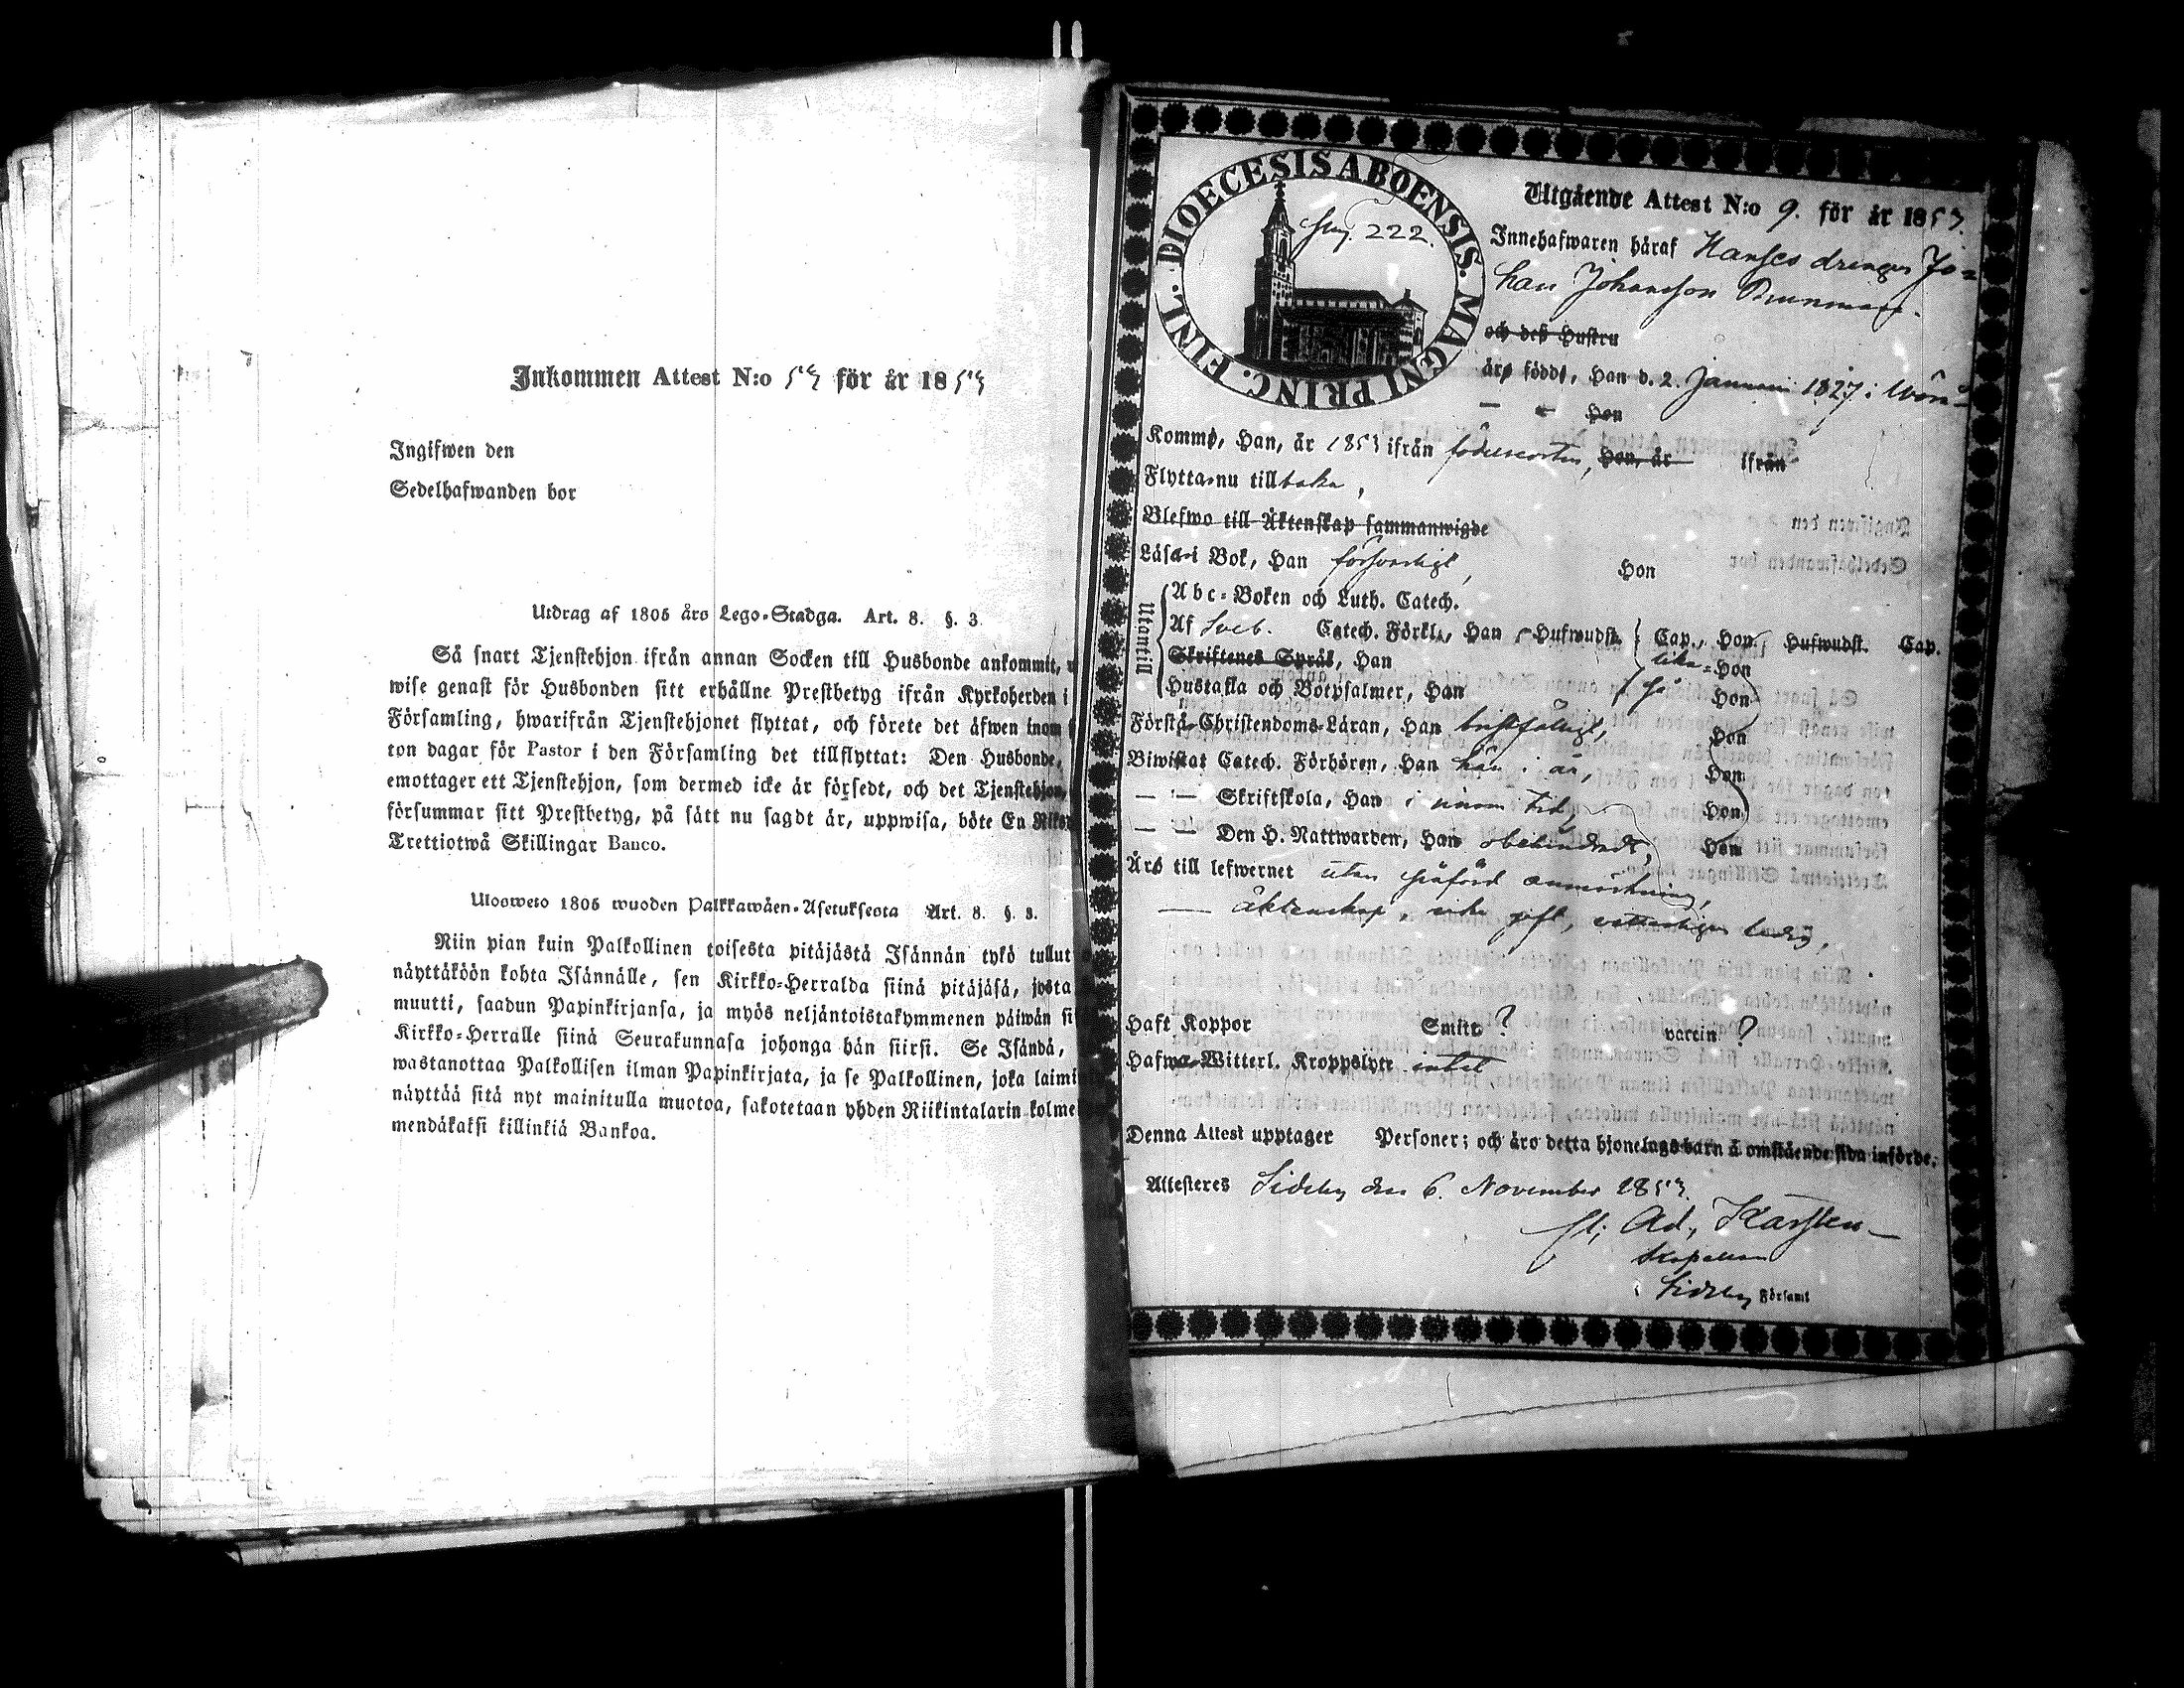 Inkommen Attest N:o 53 för år 1853
Ingifwen den
Sedelhafwanden bor
Utdrag af 1805 års Lego-Stadga. Art. 8. §. 3.
Så snart Tjenstehjon ifrån annan Socken till Husbonde ankommit,
wise genast för Husbonden sitt erhållne Prestbetyg ifrån Kyrkoherden i
Församling, hwarifrån Tjenstehjonet flyttat, och förete det äfwen inom
ton dagar för Pastor i den Församling det tillflyttat: Den Husbonde,
emottager ett Tjenstehjon, som dermed icke är försedt, och det Tjenstehjon,
försummar sitt Prestbetyg, på sätt nu sagdt är, uppwisa, böte En Riks
Trettiotwå Skillingar Banco.
Ulosweto 1805 wuoden Palkkawäen-Asetuksesta Art. 8. §. 3.
Niin pian kuin Palkollinen toisesta pitäjästä Isännän tykö tullut
näyttäköön kohta Isännälle, sen Kirkko-Herralda siinä pitäjäsä, josta
muutti, saadun Papinkirjansa, ja myös neljäntoistakymmenen päiwän si
Kirkko-Herralle siinä Seurakunnasa johonga hän siirsi. Se Isändä,
wastanottaa Palkollisen ilman Papinkirjata, ja se Palkollinen, joka laimi
näyttää sitä nyt mainitulla muotoa, sakotetaan yhden Riikintalarin kolme
mendäkaksi killinkiä Bankoa.
DIOECESIS ABOENSIS. MAGNI PRINC. FINL.
222.
Utgående Attest N:o 9. för år 1853.
Innehafwaren häraf drengen Jo-
han Johansson
och deß Hustru
äro födde, Han d. 2. Januari 1827 i Wörå
— — Hon
Komme, Han, år 1853 ifrån födelseorten, Hon, år ifrån
Flytta nu tillbaka,
Blefwo till Äktenskap sammanwigde
Läsa i Bok, Han försvarligt, Hon
Utantill
Abc-Boken och Luth. Catech.
Af Sveb. Catech. Förkl., Han Hufwudst. Cap., Hon Hufwudst. Cap.
Skriftenes Språk, Han lika- Hon
Hustafla och Botpsalmer, Han så Hon
Förstå Christendoms-Läran, Han bristfälligt, Hon
Biwistat Catech. Förhören, Han här i år, Hon
— — Skriftskola, Han i sinom tid, Hon
— — Den H. Nattwarden, Han obehindradt, Hon
Äro till lefwernet utan anmärkning,
— äktenskap, icke gift, ledig,
Haft Koppor Smitt ? vaccin ?
Hafwa Witterl. Kroppslyte intet
Denna Attest upptager Personer; och äro detta hjonelags barn å omstående sida införde.
Attesteres Sideby den 6. November 1853.
Ad. Karsten
Kapellan
i Sideby Församl